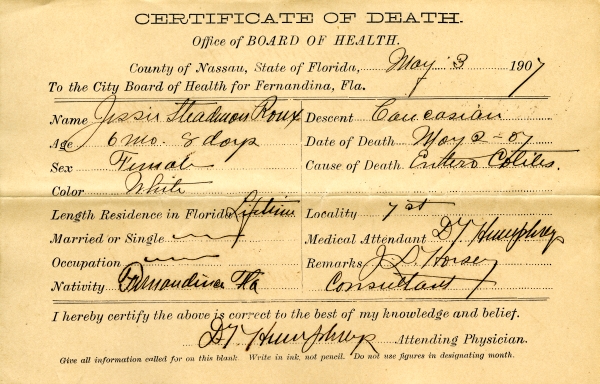 CERTIFICATE OF DEATH.
Office of BOARD OF HEALTH.
County of Nassau, State of Florida, May 3 1907
To the City Board of Health for Fernandina, Fla.
Name Jessie Steadman Roux
Descent Caucasian
Age 6 mo. 8 days
Date of Death May 2-07
Sex Female
Cause of Death Entero Colites.
Color White
Length Residence in Florida Lifetime
Locality 7 st
Married or Single
Medical Attendant D. Humphreys
Occupation
Remarks J. D. Horsey
Nativity Fernandina Fla
Consultant
I hereby certify the above is correct to the best of my knowledge and belief.
Humphreys Attending Physician.
Give all information called for on this blank. Write in ink, not pencil. Do not use figures in designating month.